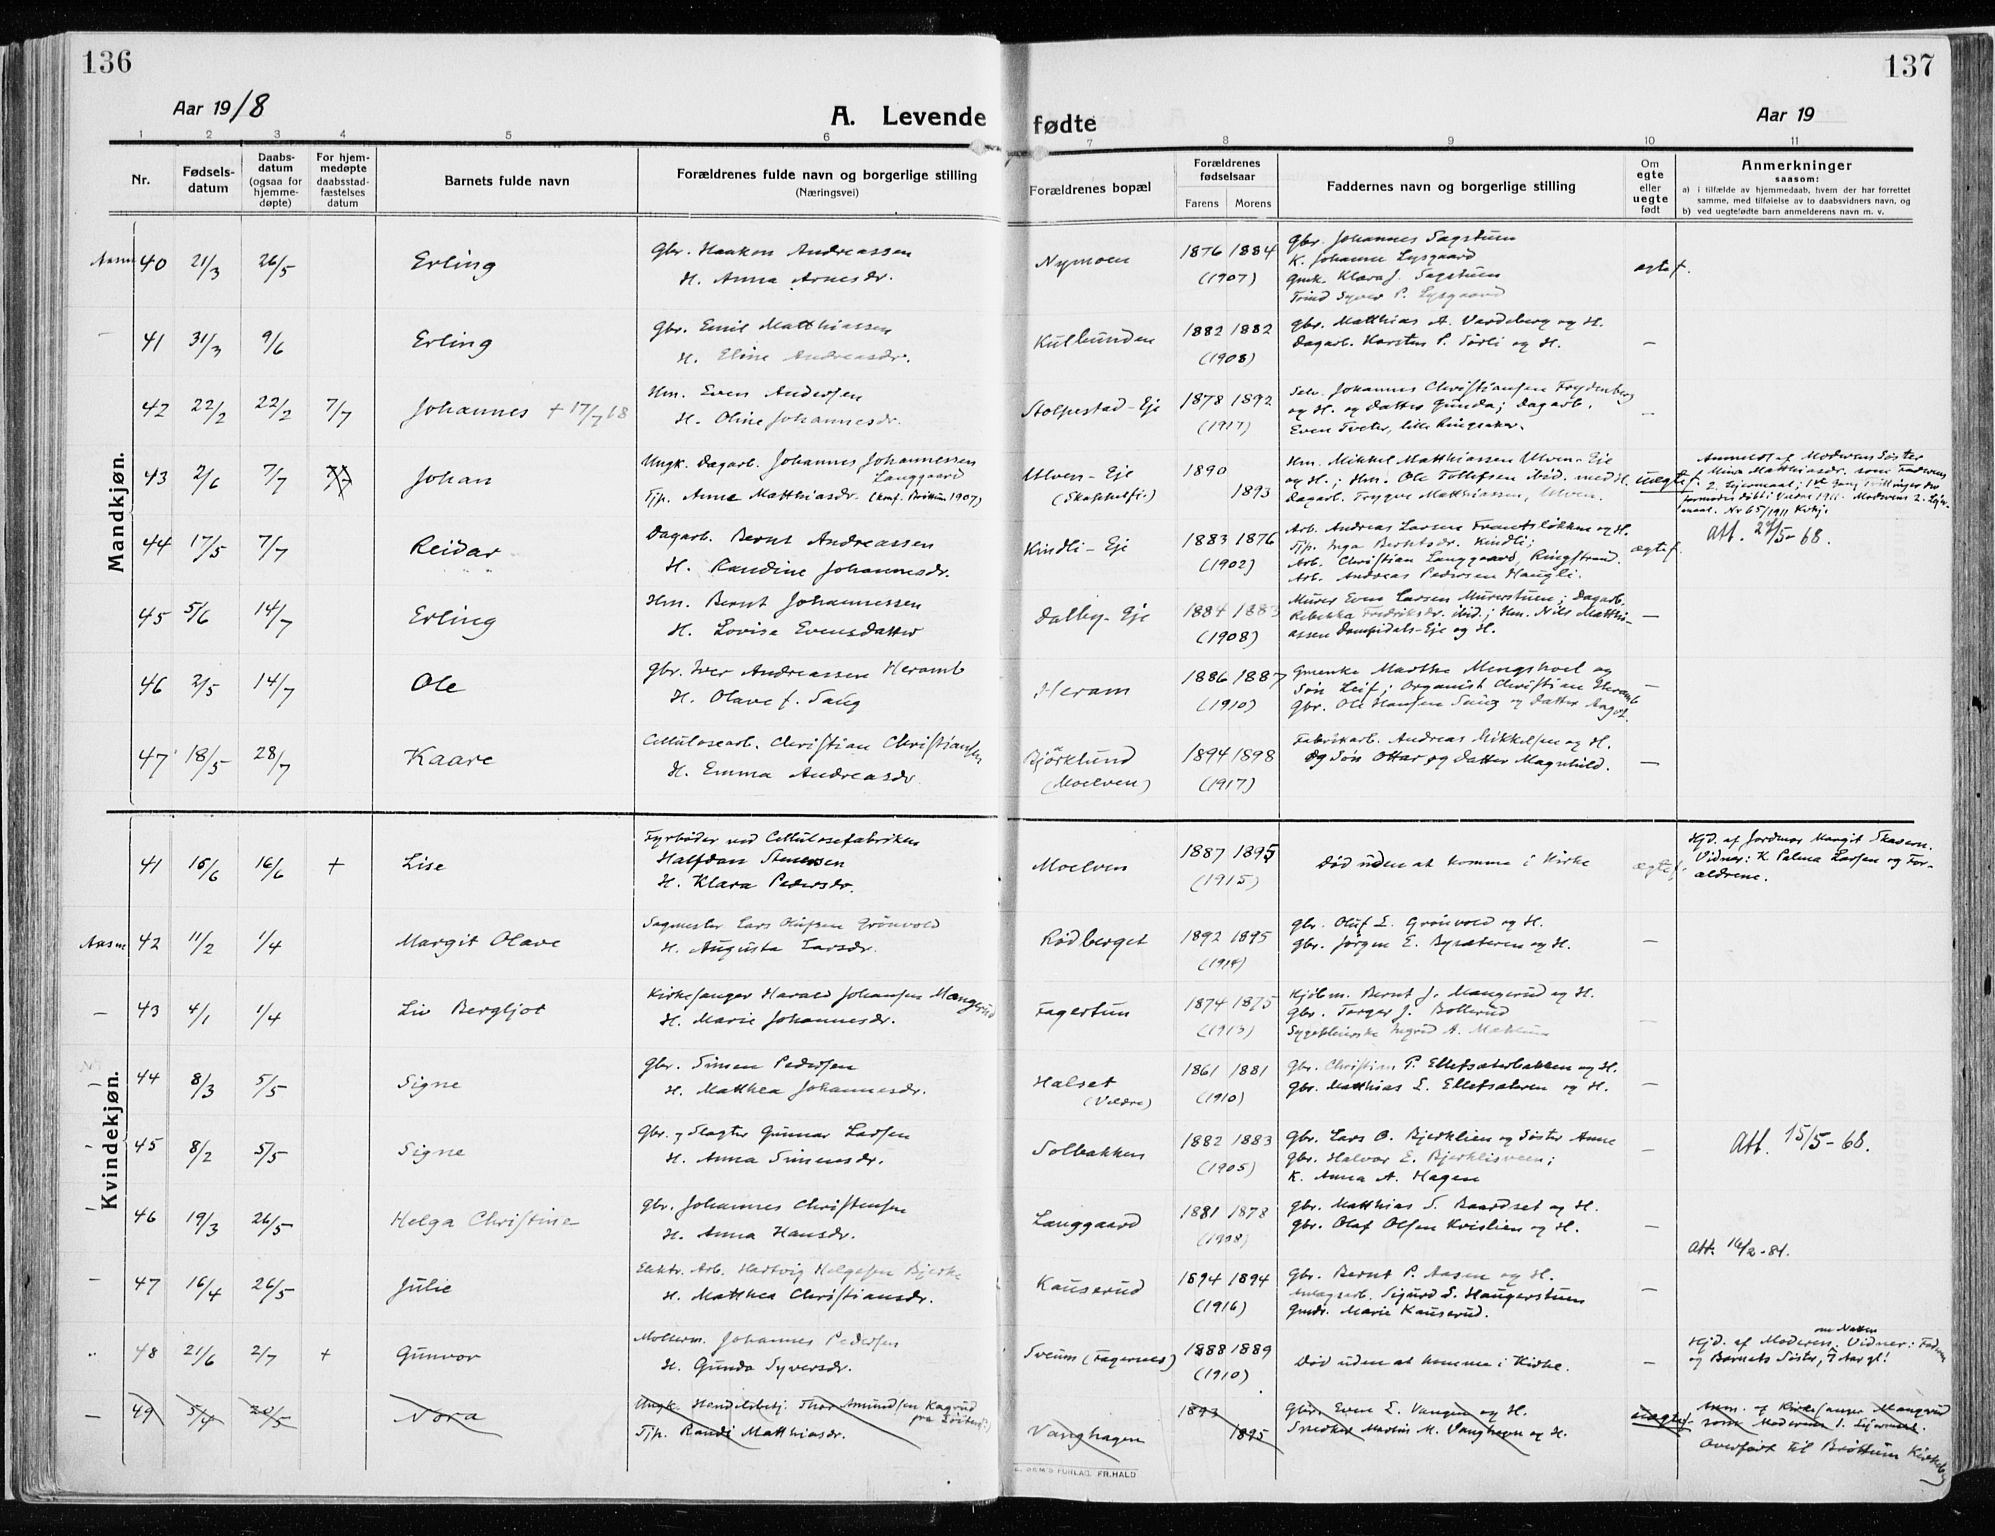 136
137
Aar 1918
A. Levende fødte
Aar 19
1 2 3 4 5 6 7 8 9 10 11
Nr.
Fødsels-
datum
Daabs-
datum
(ogsaa for
hjemme-
døpte)
For hjem-
medøpte
daabsstad-
fæstelses
datum
Barnets fulde navn
Forældrenes fulde navn og borgerlige stilling
(Næringsvei)
Forældrenes bopæl
Forældrenes
fødselsaar
Farens Morens
Faddernes navn og borgerlige stilling
Om
egte
eller
uegte
født
Anmerkninger
saasom:
a) i tilfælde av hjemmedaab, hvem der har forrettet
samme, med tilføielse av to daabsvidners navn, og
b) ved uegtefødte barn anmelderens navn m. v.
Mandkjøn.
40 21/3 26/5 Erling Gbr. Haakon Andreassen Nymoen 1876 1884 Gbr. Johannes Sagstuen
H. Anna Arnesdr. (1907) K. Johanne Lysgaard ægtef.
Gmk. Klara J. Sagstuen
Syver P. Lysgaard
41 31/3 9/6 Erling Gbr. Emil Matthiassen Kulbunden 1882 1882 Gbr. Matthias A. Vardeberg og H.
H. Eline Andreasdr. (1908) Dagarb. Karsten P. Sørli og H. —
42 22/2 22/2 7/7 Johannes + 17/7 18 Hm. Even Andersen Stolpestad-Eje 1878 1892 Selv. Johannes Christiansen Frydenberg
H. Oline Johannesdr. (1917) og H. og Datter Gunda; Dagarb. —
Even Tveter, lille Ringsaker.
43 2/6 7/7 Johan Ungk. Dagarb. Johannes Johannessen Ulven-Eje 1890 Hm. Mikkel Matthiassen Ulven-Eje Anmeldt af Moderens Søster
Langgaard og H.; Hm. Ole Tollefsen ibid. med H. uægtef.
Tjp. Anne Matthiasdr. (konf. Brøttum 1907) 1893 Dagarb. Trygve Matthiassen, Ulven.
Mina Matthiasdr. som Faderens
2. Lejermaal; 1ste Gang Tvillinger der
formodes døbt i Veldre 1911. Moderens 2. Lejer-
maal. Nr 65/1911 Kirkj.
44 17/5 7/7 Reidar Dagarb. Bernt Andreassen Kindli-Eje 1883 1876 Arb. Andreas Larsen Frantsløkken og H. Att. 27/5-68.
H. Randine Johannesdr. (1902) Tjp. Inga Berntsdr. Kindli; ægtef.
Arb. Christian Langgaard, Ringstrand.
Arb. Andreas Pedersen Haugli.
45 5/6 14/7 Erling Hm. Bernt Johannessen Dalby-Eje 1884 1883 Murer Even Larsen Murerstuen; Dagarb.
H. Lovise Evensdatter (1908) Rebekka Fredriksdr. ibid.; Hm. Nils Matthi- —
assen Dampidals-Eje og H.
46 2/5 14/7 Ole Gbr. Iver Andreassen Heramb Heram 1886 1887 Gmenke Marthe Mengshoel og
H. Olave f. Saug (1910) Søn Leif; Organist Christian Heramb —
Gbr. Ole Hansen Saug og Datter Aagot.
47 18/5 28/7 Kaare Cellulosearb. Christian Christiansen Bjørklund 1894 1898 Fabrikarb. Andreas Mikkelsen og H.
H. Emma Andreasdr. (Moelven) (1917) og Søn Ottar og Datter Magnhild. —
Kvindekjøn.
41 15/6 16/6 + Lise Fyrbøder ved Cellulosefabriken Moelven 1887 1895 Død uden at komme i Kirke ægtef.
Halfdan Stenersen (1915)
H. Klara Pedersdr.
Hjd. af Jordmor Margit Skaven.
Vidner: K. Palma Larsen og For-
ældrene.
42 11/2 1/4 Margit Olave Sagmester Lars Olufsen Grønvold Rødberget 1892 1895 Gbr. Oluf L. Grønvold og H.
H. Augusta Larsdr. (1914) Gbr. Jørgen E. Bysæteren og H. —
— 43 4/1 1/4 Liv Bergljot Kirkesanger Harald Johansen Mangerud Fagertun 1874 1875 Kjøbm. Bernt J. Mangerud og H.
H. Marie Johannesdr. (1913) Gbr. Torger J. Bollerud —
Sygepleierske Ingrid A.
44 8/3 5/5 Signe Gbr. Simen Pedersen Halset 1861 1881 Gbr. Christian P. Ellefsæterbakken og H.
H. Matthea Johannesdr. (Veldre) (1910) Gbr. Matthias L. Ellefsæteren og H. —
45 8/2 5/5 Signe Gbr. og Slagter Gunnar Larsen Solbakken 1882 1883 Gbr. Lars O. Bjerklien og Søster Anne Att. 15/5-68.
H. Anna Simensdr. (1905) Gbr. Halvor E. Bjerklisveen; —
K. Anna A. Hagen
46 19/3 26/5 Helga Christine Gbr. Johannes Christensen Langgaard 1881 1878 Gbr. Matthias S. Baardset og H.
H. Anna Hansdr. (1908) Gbr. Olaf Olsen Kvislien og H. —
Att. 16/2-81.
47 16/4 26/5 Julie Elektr. Arb. Hartvig Helgesen Bjerke Kauserud 1894 1894 Gbr. Bernt P. Aasen og H.
H. Matthea Christiansdr. (1916) Anlægsarb. Sigurd S. Haugerstuen —
Gmdr. Marie Kauserud.
48 21/6 2/7 + Gunvor Møllerm. Johannes Pedersen Sveum (Fagernes) 1888 1889 Død uden at komme i Kirke. —
H. Gunda Syversdr. (1910)
Hjd. af Moderen om Natten. Vidner: Faderen
og Barnets Søster, 7 Aar gl!
— 49 5/4 20/5 Nora Ungk. Handelsbetj. Thor Amundsen Kagrud Vanghagen 1893 Gbr. Even E. Vangen og H. uægtef.
Tjp. Randi Matthiasdr. 1895 Snedker Martin M. Vanghagen og H.
Anm. af Kirkesanger Mangerud
som Moderens 1. Lejermaal.
Overført til Brøttum Kirkebog
E. SEM'S FORLAG, FR.HALD